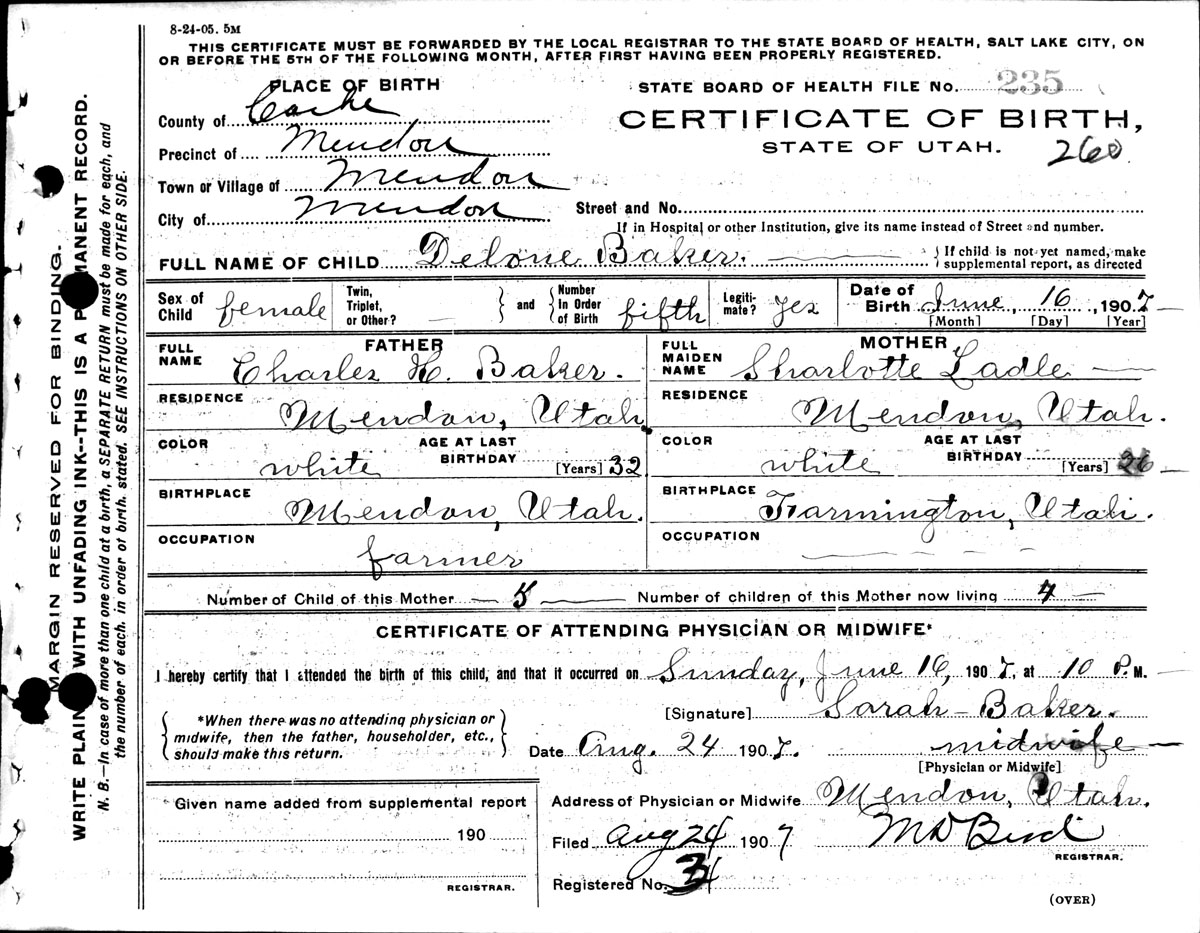 8-24-05. 5M
THIS CERTIFICATE MUST BE FORWARDED BY THE LOCAL REGISTRAR TO THE STATE BOARD OF HEALTH, SALT LAKE CITY, ON
OR BEFORE THE 5TH OF THE FOLLOWING MONTH, AFTER FIRST HAVING BEEN PROPERLY REGISTERED.
PLACE OF BIRTH
STATE BOARD OF HEALTH FILE NO. 235
County of Cache
CERTIFICATE OF BIRTH,
Precinct of Mendon
STATE OF UTAH. 260
Town or Village of Mendon
City of Mendon
Street and No.
If in Hospital or other Institution, give its name instead of Street and number.
FULL NAME OF CHILD Delone Baker. { If child is not yet named, make
supplemental report, as directed
Sex of Child female Twin, Triplet, or Other? — } and { Number In Order of Birth fifth Legiti-mate? Yes Date of Birth June, 16, 1907
[Month] [Day] [Year]
FATHER
FULL NAME Charles H. Baker.
RESIDENCE
Mendon, Utah.
COLOR white AGE AT LAST BIRTHDAY [Years] 32
BIRTHPLACE
Mendon, Utah.
OCCUPATION
farmer
MOTHER
FULL MAIDEN NAME Sharlotte Ladle
RESIDENCE
Mendon, Utah.
COLOR white AGE AT LAST BIRTHDAY [Years] 26
BIRTHPLACE
Farmington, Utah.
OCCUPATION
Number of Child of this Mother 5 Number of children of this Mother now living 4
CERTIFICATE OF ATTENDING PHYSICIAN OR MIDWIFE*
I hereby certify that I attended the birth of this child, and that it occurred on Sunday, June 16, 1907, at 10 P.M.
{ *When there was no attending physician or
midwife, then the father, householder, etc.,
should make this return. }
[Signature] Sarah Baker.
Date Aug. 24 1907. midwife
[Physician or Midwife]
Given name added from supplemental report
190
REGISTRAR.
Address of Physician or Midwife Mendon, Utah.
Filed Aug 24 1907 M D Bird
REGISTRAR.
Registered No.
(OVER)
MARGIN RESERVED FOR BINDING.
WRITE PLAINLY WITH UNFADING INK--THIS IS A PERMANENT RECORD.
N. B.—In case of more than one child at a birth, a SEPARATE RETURN must be made for each, and
the number of each, in order of birth, stated. SEE INSTRUCTIONS ON OTHER SIDE.